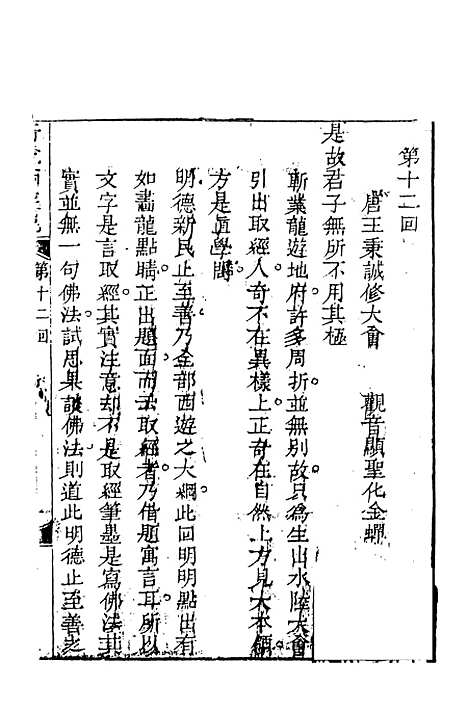 第十二回
唐王秉誠修大會 觀音顯聖化金蟬
是故君子無所不用其極
斬業龍遊地府許多周折並無別故只為生出水陸大會
引出取經人奇不在異樣上正奇在自然上方見大本領
方是真學問
明德新民止至善乃全部西遊之大綱此回明明點出有
如畫龍點睛正出題面而去取經者乃借題寓言耳所以
文字是言取經其實注意却不是取經筆墨是寫佛法其
實並無一句佛法試思果談佛法則道此明德止至善之
第十二回